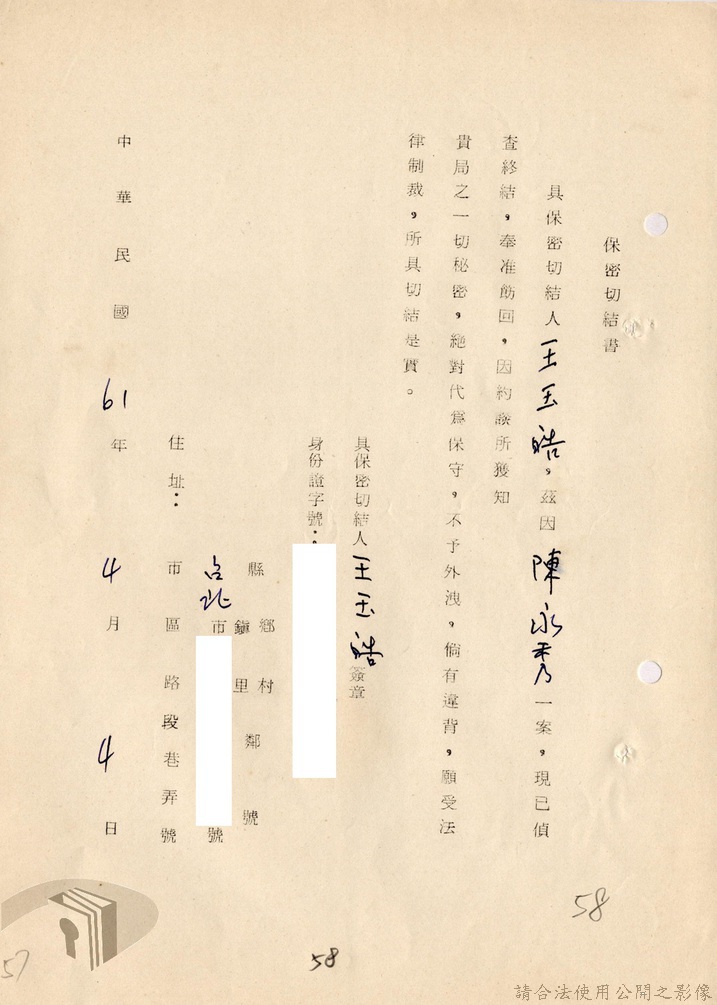 保密切結書
具保密切結人王玉皓，茲因陳永秀一案，現已偵
查終結，奉准飭回，因約談所獲知
貴局之一切秘密，絕對代為保守，不予外洩，倘有違背，願受法
律制裁，所具切結是實。
具保密切結人王玉皓簽章
身份證字號：
住址：
縣鄉村鄰號
鎮里
台北市號
市區路段巷弄號
中華民國61年4月4日
58
58
57
請合法使用公開之影像